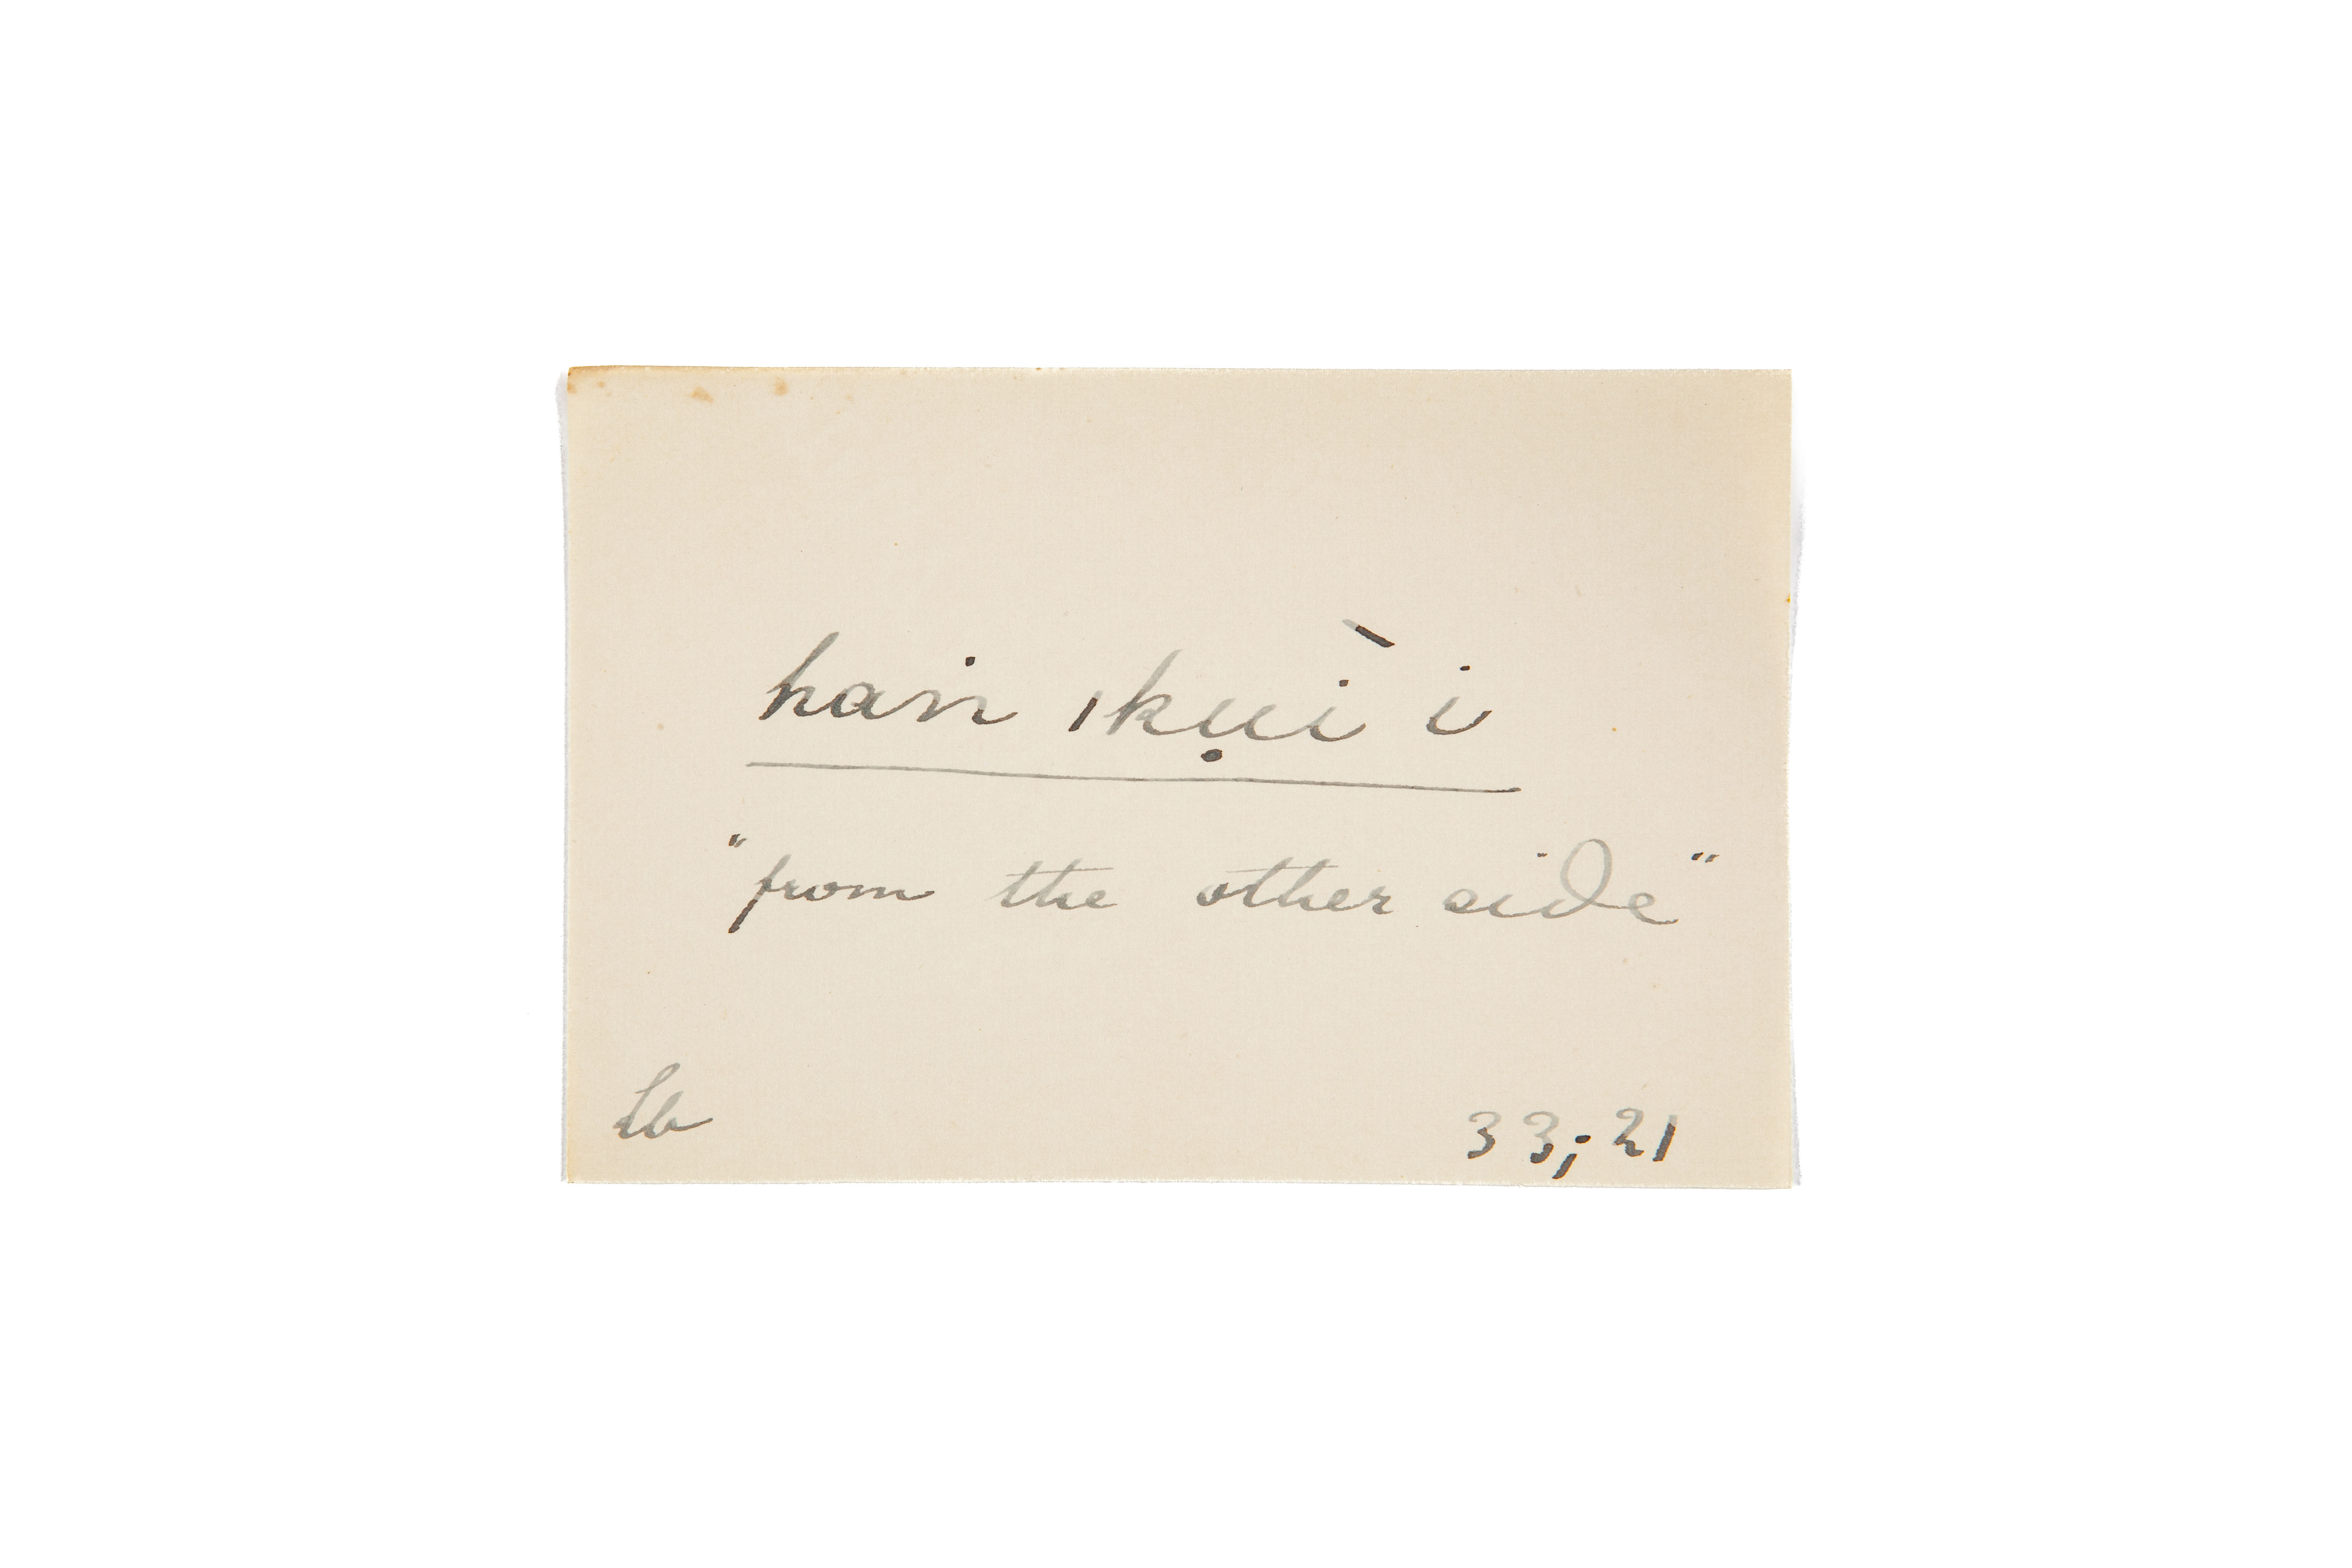 haṅ ǀkụi ̀ i
"from the other side"
Lb
33; 21